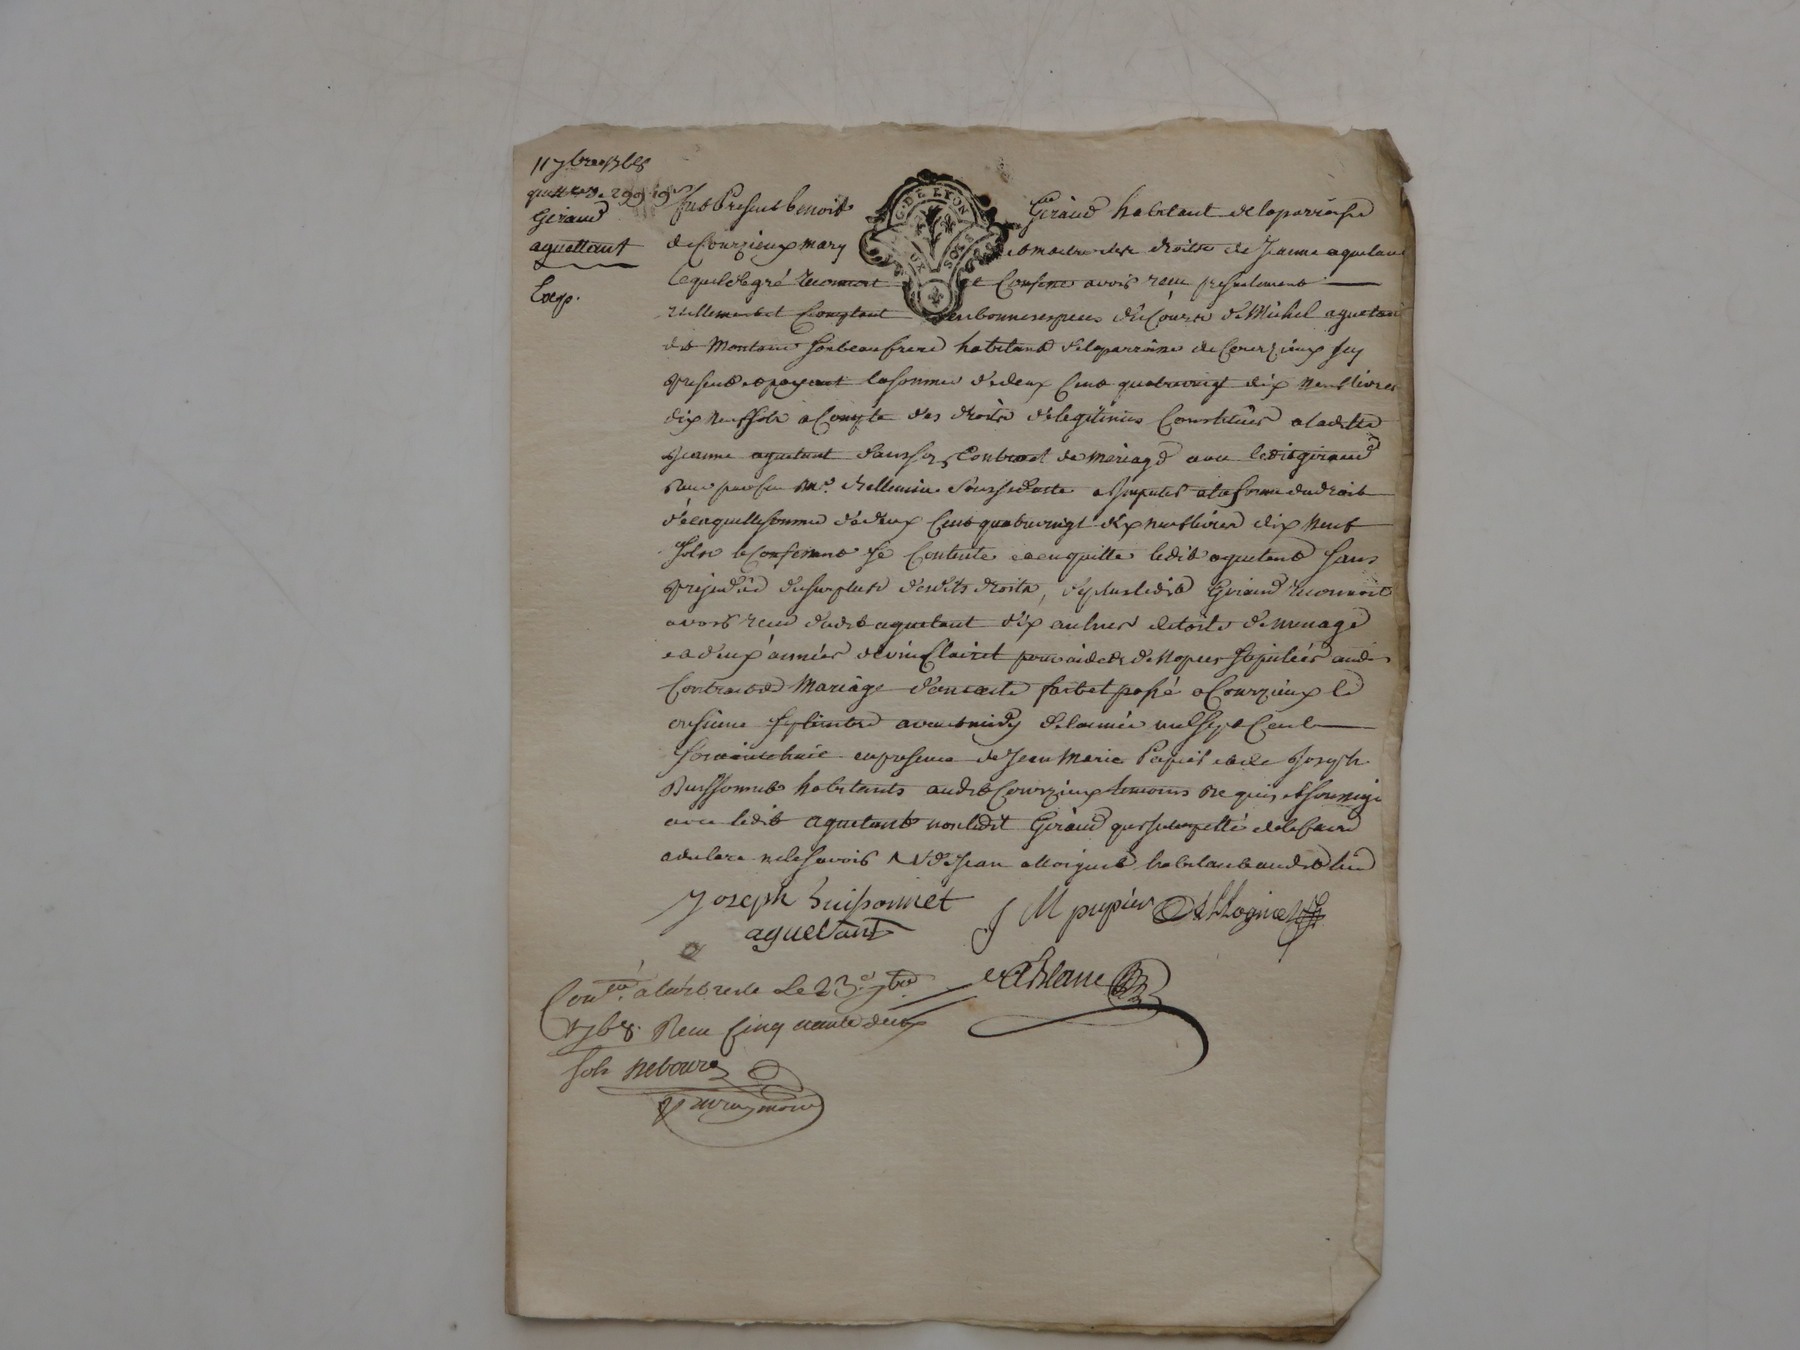 11 7bre 1768
quittance 299# 19s
Giraud
aquettant
Exp.
G. DE LYON
DEUX SOLS
fut Present benoit Giraud habitant de la parroisse
de Courzieux mary et maitre des droits de Jeanne aquetant
lequel de gré reconnoit et Confesse avoir reçu presentement
reellement et Comptant en bonnes especes de Cours de Michel aquetant
dit Montane son beau frere habitant de la parroisse de Courzieux Icy
present et payant la somme de deux Cent quatrevingt dix neuf livres
dix neuf sols a Compte des droits de legitime Constitués a ladite
Jeanne aquetant dans son Contract de Mariage avec ledit giraud
Reçu par Me. a imputer a la forme du droit
de laquelle somme de deux Cent quatrevingt dix neuf livres dix neuf
sols le Confessant se Contente et en quitte ledit aquetant sans
prejudice du surplus desdits droits, de plus ledit Giraud reconnoit
avoir reçu dudit aquetant dix aulnes de toile de menage
et deux années de vin Clairet pour aide de Nopces stipulées audit
Contract de Mariage dont acte fait et passé a Courzieux le
onsieme septembre avant midy de l'année mil sept Cent
soixante huit en presence de Jean Marie Pupier et de Joseph
Buissonnet habitants audit Courzieux temoins Requis et soussignés
avec ledit aquetant non ledit Giraud qui interpellé de le faire
a declaré ne le savoir de Jean habitant audit lieu
Joseph buissonnet J M pupier
aquetant
Conllé. a larbresle Le 23e 7bre
1768. Reçu Cinquante deux
sols